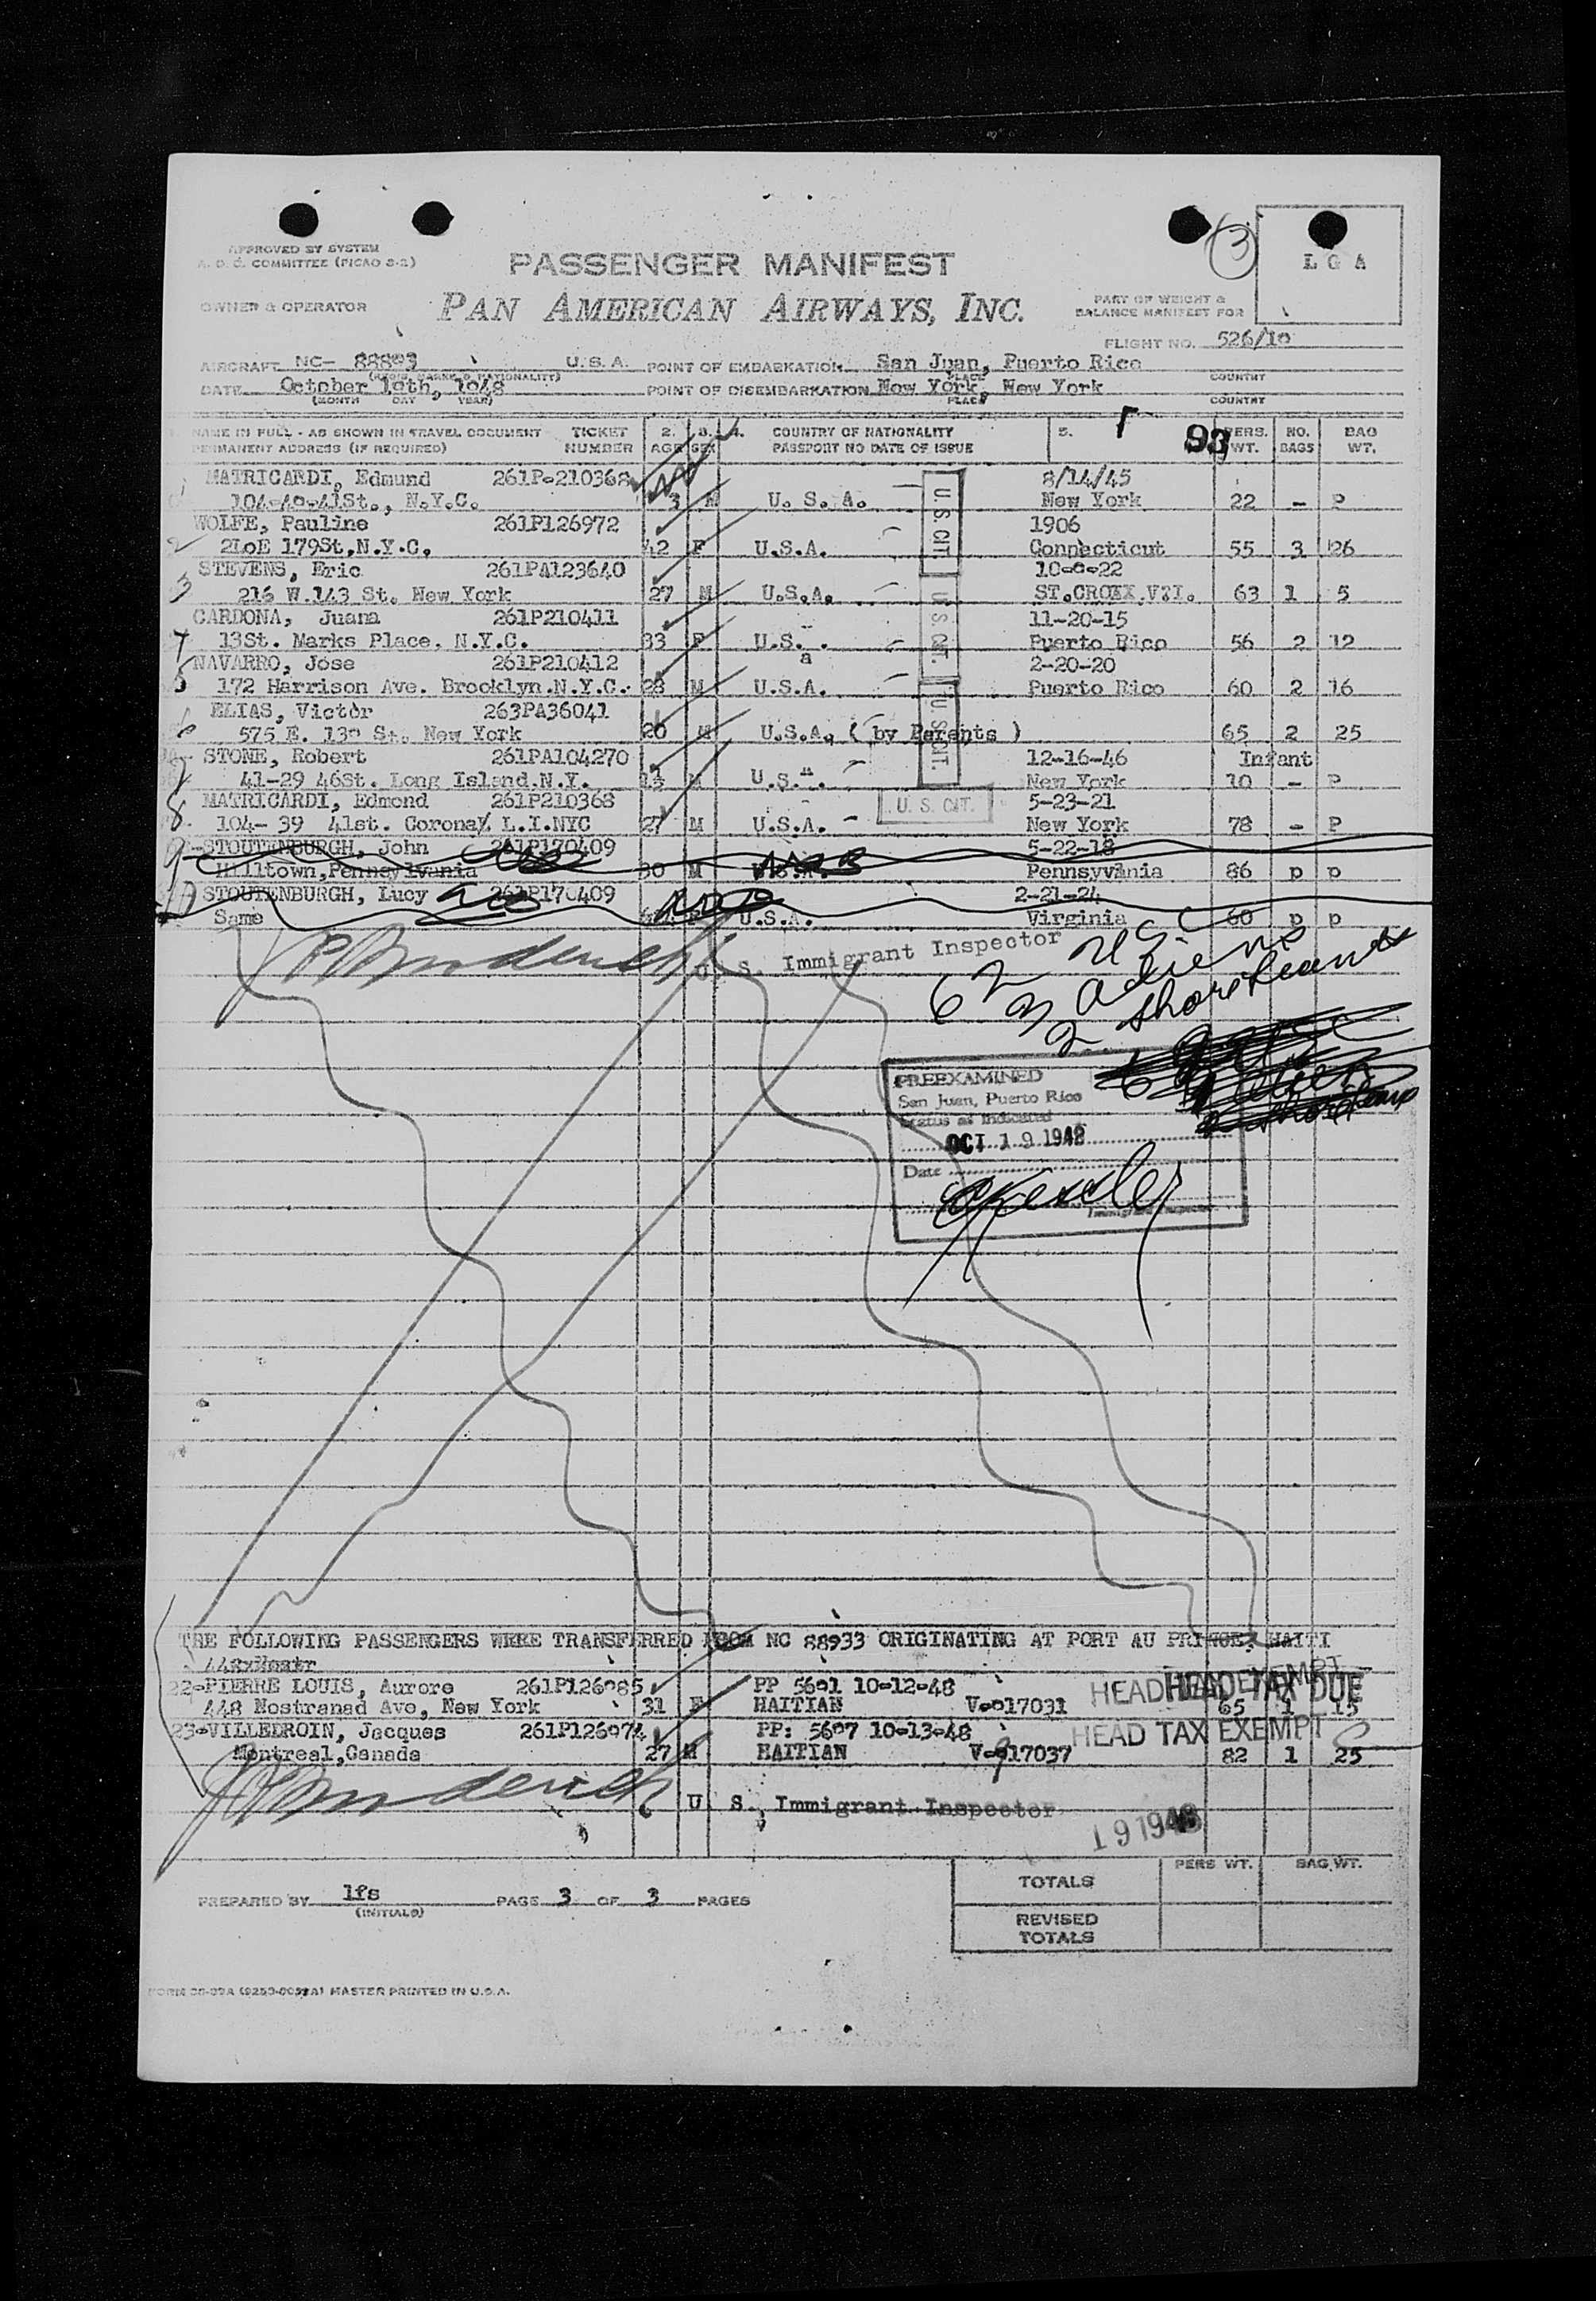 APPROVED BY SYSTEM
COMMITTEE (PICAO 8-2)
LGA
PASSENGER MANIFEST
OWNER & OPERATOR
PAN AMERICAN AIRWAYS, INC.
PART OF WEIGHT &
BALANCE MANIFEST FOR
3
FLIGHT NO. 526/19
AIRCRAFT NC- 88893 U.S.A. POINT OF EMBARKATION San Juan, Puerto Rico
(REGIS. MARKS & NATIONALITY) PLACE COUNTRY
DATE October 19th, 1948 POINT OF DISEMBARKATION New York, New York
(MONTH DAY YEAR) PLACE COUNTRY
NAME IN FULL - AS SHOWN IN TRAVEL DOCUMENT TICKET 2. 3. 4. COUNTRY OF NATIONALITY 5. 93 PERS. NO. BAG
PERMANENT ADDRESS (IF REQUIRED) NUMBER AGE SEX PASSPORT NO DATE OF ISSUE WT. BAGS WT.
MATRICARDI, Edmund 261P-210368 8/14/45
104-40-41St., N.Y.C. 3 M U. S. A. New York 22 - P
2 WOLFE, Pauline 261P126972 1906
210E 179St,N.Y.C. 42 F U.S.A. Connecticut 55 3 26
3 STEVENS, Eric 261PA123640
216 W.143 St. New York 27 M U.S.A. ST.CROIX.V.I. 63 1 5
CARDONA, Juana 261P210411 11-20-15
13St. Marks Place. N.Y.C. 33 F U.S. . Puerto Rico 56 2 12
5 NAVARRO, Jose 261P210412 a 2-20-20
172 Harrison Ave. Brooklyn.N.Y.C. 28 M U.S.A. Puerto Rico 60 2 16
6 ELIAS, Victor 263PA36041
575 E. 13 St. New York 20 M U.S.A. ( by Parents ) 65 2 25
STONE, Robert 261PA104270 12-16-46 Infant
41-29 46St. Long Island.N.Y. M U.S. . New York 10 - P
8 MATRICARDI, Edmond 261P210368 5-23-21
104- 39 41st. Corona, L.I.NYC 27 M U.S.A. New York 78 - P
U. S. CIT.
U. S. CIT.
U. S. CIT.
U. S. CIT.
9 STOUTENBURGH, John 261P170409 5-22-18
Hilltown,Pennsylvania 30 M Pennsyvania 86 p p
10 STOUTENBURGH, Lucy 261P170409 2-21-24
Same U.S.A. Virginia 60 p p
U. S. Immigrant Inspector
62 USC
2 aliens
PREEXAMINED
San Juan, Puerto Rico
Status as indicated
OCT 19 1948
Date
Immigrant Inspector
THE FOLLOWING PASSENGERS WERE TRANSFERRED FROM NC 88933 ORIGINATING AT PORT AU PRINCE, HAITI
22-PIERRE LOUIS, Aurore 261P126085 PP 5601 10-12-48 HEAD TAX EXEMPT HEAD TAX DUE
448 Nostranad Ave, New York 31 F HAITIAN V-017031 65 1 15
23-VILLEDROIN, Jacques 261P126074 PP: 5607 10-13-48 HEAD TAX EXEMPT
Montreal,Canada 27 M HAITIAN V-017037 82 1 25
U. S. Immigrant Inspector
19 1948
PERS WT. BAG WT.
TOTALS
REVISED
TOTALS
PREPARED BY lfs PAGE 3 OF 3 PAGES
(INITIALS)
MASTER PRINTED IN U.S.A.